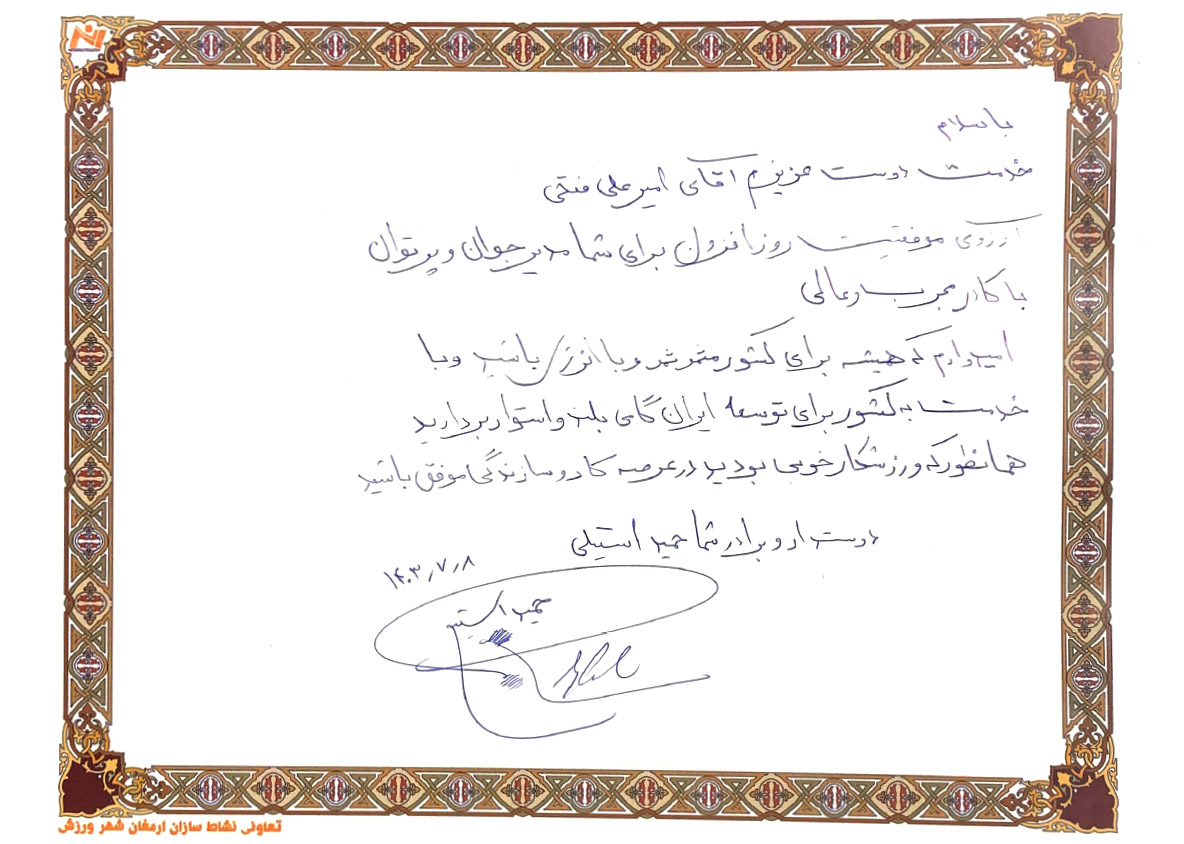 با سلام
خدمت دوست عزیزم آقای امیرعلی فتحی
آرزوی موفقیت روزافزون برای شما مدیر جوان و پرتوان
با کادر مجرب و عالی
امیدوارم که همیشه برای کشور مثمر ثمر و با انرژی باشید و با
خدمت به کشور برای توسعه ایران گامی بلند و استوار بردارید
همانطور که ورزشکار خوبی بودید در عرصه کار و سازندگی موفق باشید
دوستدار و برادر شما حمید استیلی
۱۴۰۳٫۷٫۸
حمید استیلی
تعاونی نشاط سازان ارمغان شهر ورزش